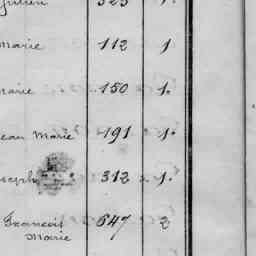 Julien 323 1.
Marie 112 1
Marie 150 1.
Jean Marie 191 1.
Joseph 312 1.
François 547 2
Marie